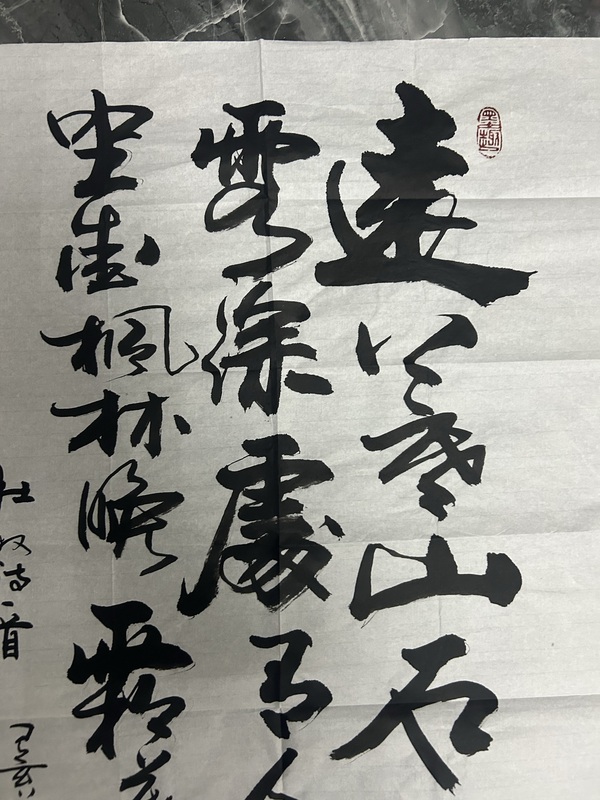 墨趣
遠上寒山石
雲深處有人
坐愛楓林晚霜葉
杜牧诗一首